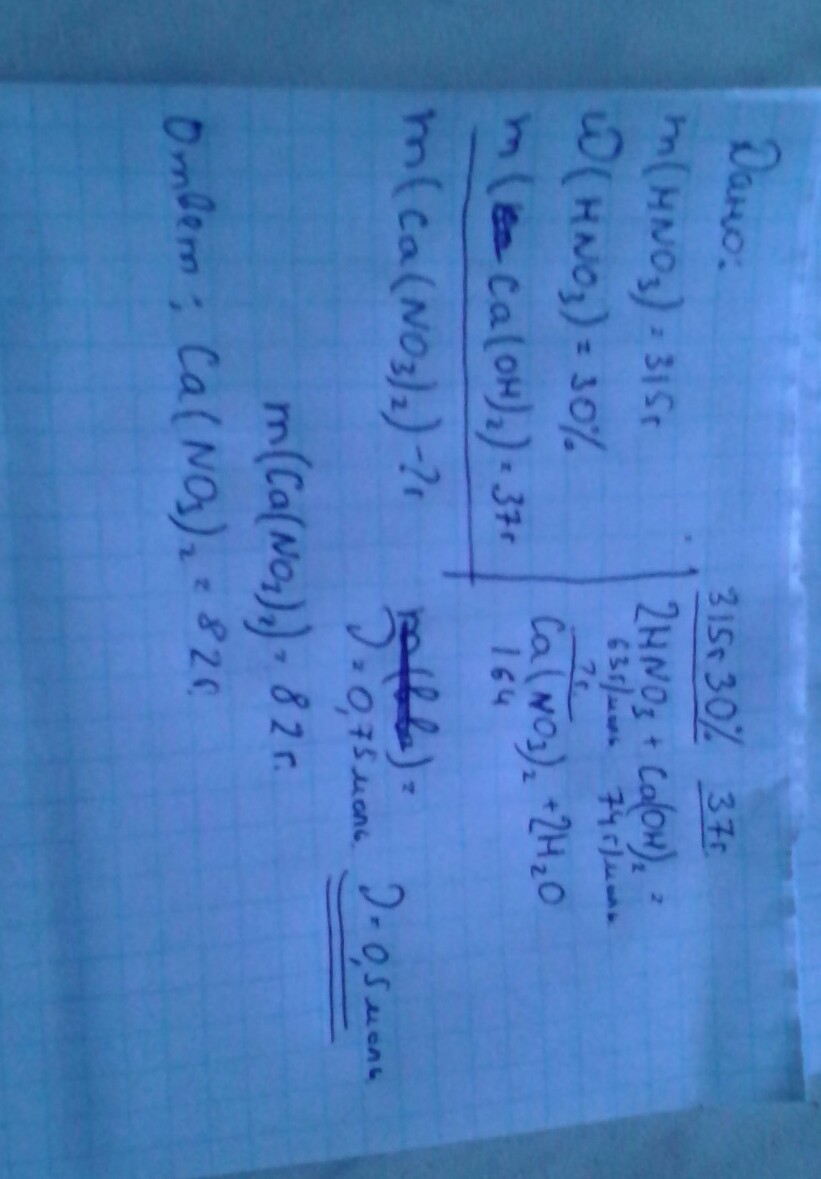 Дано:
m(HNO₃) = 315г
ω(HNO₃) = 30%
m(Ca(OH)₂) = 37г
m(Ca(NO₃)₂) - ? г
315г 30% 37г
2HNO₃ + Ca(OH)₂ =
63г/моль 74г/моль
? г
Ca(NO₃)₂ + 2H₂O
164
) =
ν = 0,75 моль ν = 0,5 моль
m(Ca(NO₃)₂) = 82г.
Ответ: Ca(NO₃)₂ = 82г.